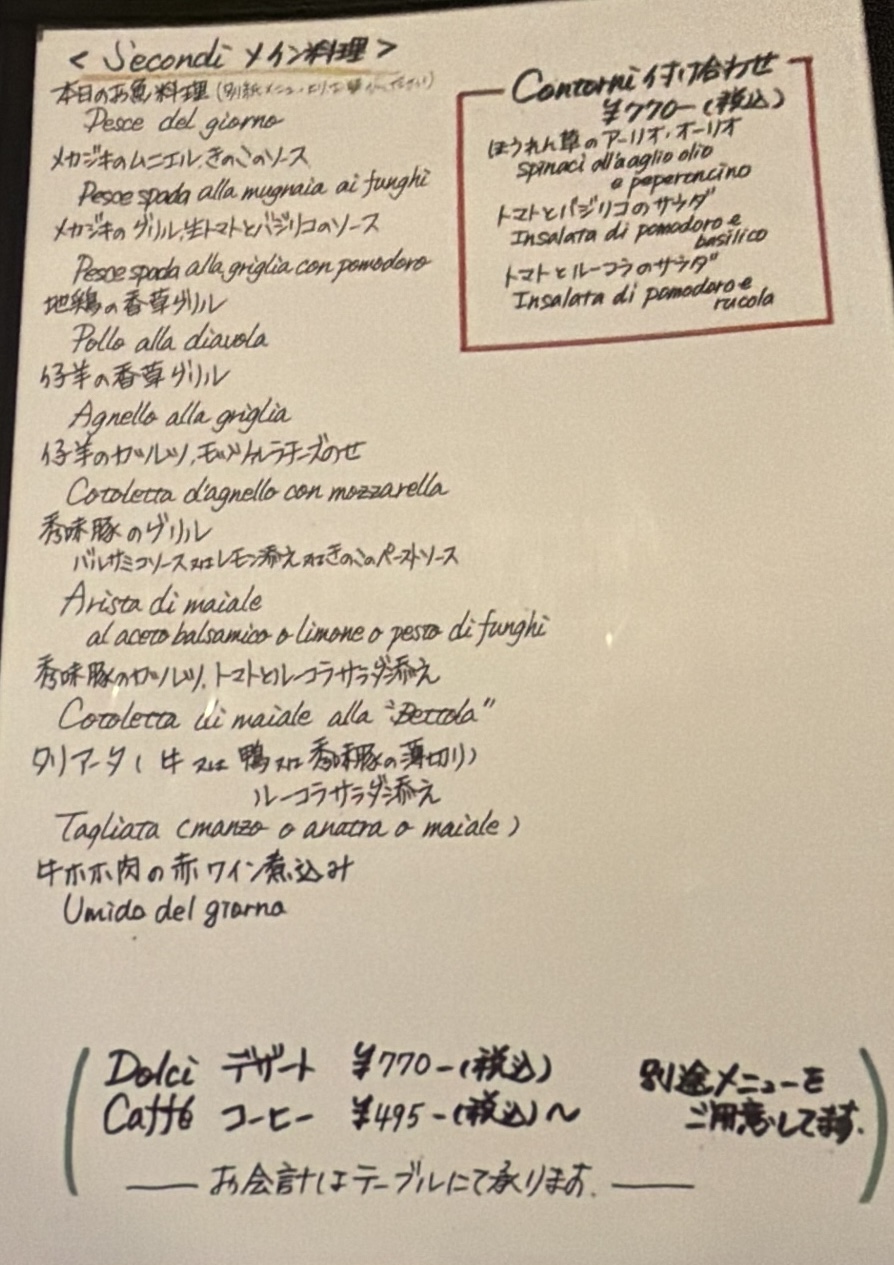 < Secondi メイン料理 >
本日のお魚料理 (別紙メニューよりお
Pesce del giorno
メカジキのムニエル、きのこのソース
Pesce spada alla mugnaia ai funghi
メカジキのグリル、生トマトとバジリコのソース
Pesce spada alla griglia con pomodoro
地鶏の香草グリル
Pollo alla diavola
仔羊の香草グリル
Agnello alla griglia
仔羊のカツレツ、モッツァレラチーズのせ
Cotoletta d'agnello con mozzarella
秀味豚のグリル
バルサミコソース又はレモン添え又はきのこのペーストソース
Arista di maiale
al aceto balsamico o limone o pesto di funghi
秀味豚のカツレツ、トマトとルーコラサラダ添え
Cotoletta di maiale alla "Bettola"
タリアータ ( 牛 又は 鴨 又は 秀味豚の薄切り)
ルーコラサラダ添え
Tagliata (manzo o anatra o maiale)
牛ホホ肉の赤ワイン煮込み
Umido del giorno
Contorni 付け合わせ
¥770-(税込)
ほうれん草のアーリオ・オーリオ
Spinaci all'aaglio olio
e peperoncino
トマトとバジリコのサラダ
Insalata di pomodoro e
basilico
トマトとルーコラのサラダ
Insalata di pomodoro e
rucola
Dolci デザート ¥770-(税込)
Caffé コーヒー ¥495-(税込)〜
別途メニューを
ご用意してます.
お会計はテーブルにて承ります.